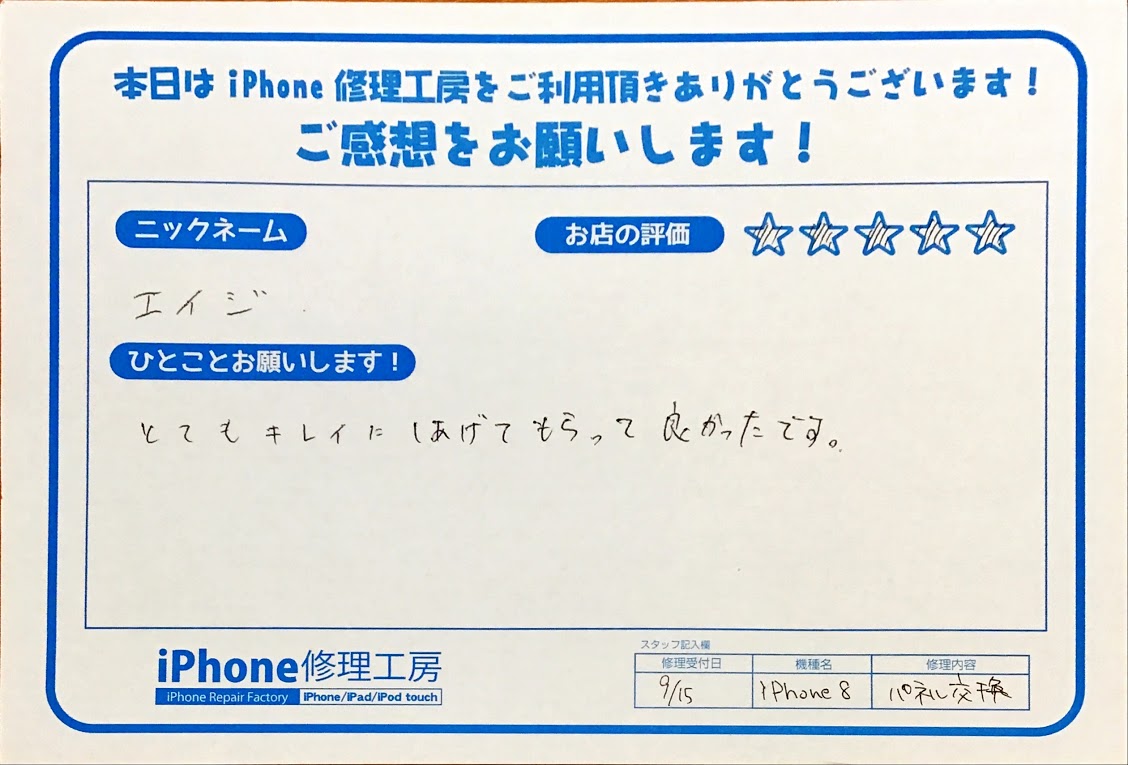 本日は iPhone 修理工房をご利用頂きありがとうございます！
ご感想をお願いします！
ニックネーム
お店の評価
エイジ
ひとことお願いします！
とてもキレイにしあげてもらって良かったです。
iPhone修理工房
iPhone Repair Factory iPhone/iPad/iPod touch
スタッフ記入欄
修理受付日 機種名 修理内容
9/15 iPhone 8 パネル交換